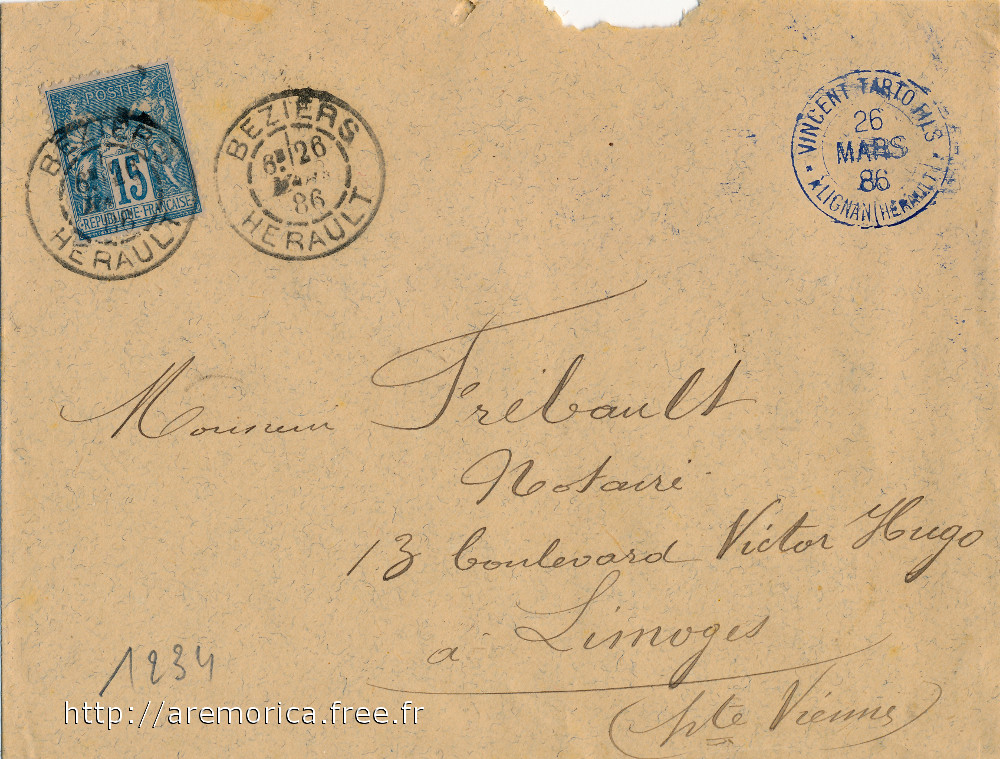 POSTES
15
REPUBLIQUE FRANÇAISE
BEZIERS
HERAULT
BEZIERS
6E 26
MARS
86
HERAULT
VINCENT TARTO FILS
26
MARS
86
LIGNAN (HERAULT)
Monsieur Frébault
Notaire
13 boulevard Victor Hugo
à Limoges
(hte Vienne)
1234
http://aremorica.free.fr